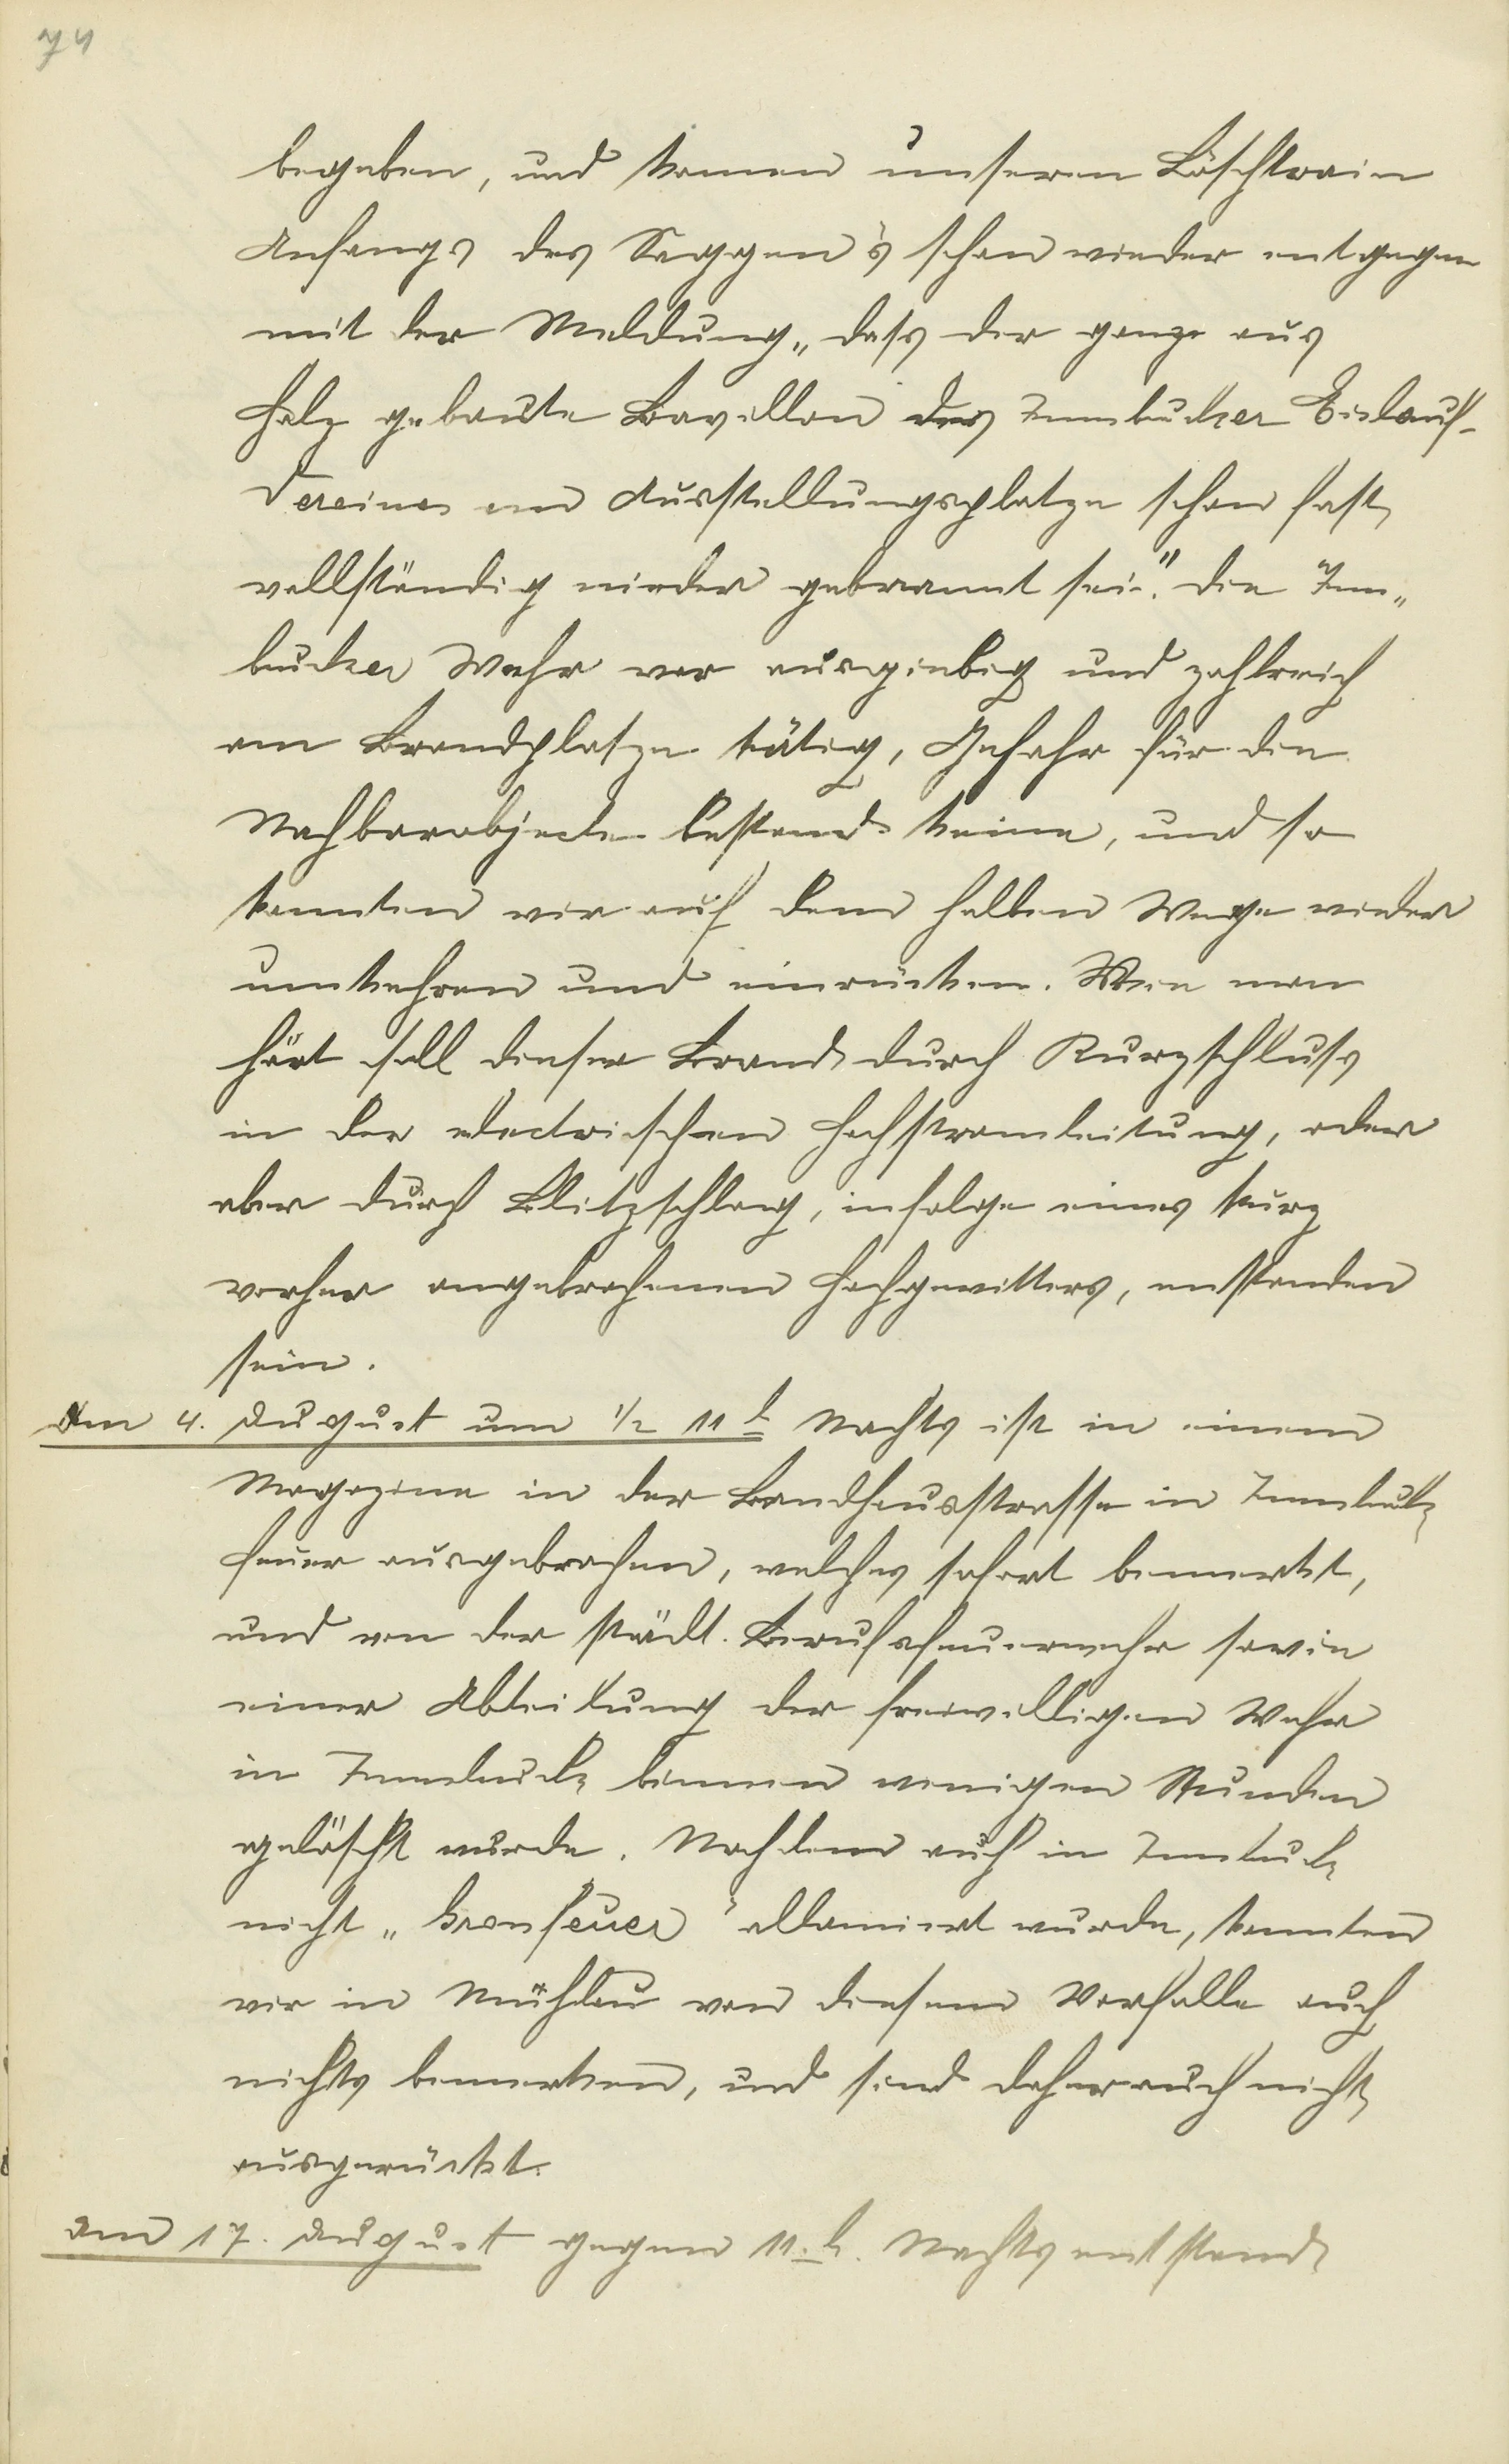 74
begeben, und kamen unserem Löschtrain
Anfangs des Saggen's schon wieder entgegen
mit der Meldung „dass der ganze aus
Holz gebaute Bavillon des Innbucker Eislauf-
Vereines am Ausstellungsplatze schon fast
vollständig nieder gebrannt sei." Die Inn„
bucker Wehr war ausgiebig und zahlreich
am Brandplatze tätig, Gefahr für die
Nachbarobjecte bestand keine, und so
konnten wir auf dem halben Wege wieder
umkehren und einrücken. Wie man
hört soll dieser Brand durch Kurzschluss
in der electrischen Hochstromleitung, oder
aber durch Blitzschlag, infolge eines kurz
vorher angebrochenen Hochgewitters, entstanden
sein.
Am 4. August um 1/2 11 h Nachts ist in einem
Magazine in der Landhausstrasse in Innbuck
Feuer ausgebrochen, welches sofort bemerkt,
und von der städt. Berufsfeuerwehr sowie
einer Abteilung der freiwilligen Wehr
in Innbuck binnen wenigen Stunden
gelöscht wurde. Nachdem auch in Innbuck
nicht „Gronfeuer" allamiert wurde, konnten
wir in Mühlau von diesem Vorfalle auch
nichts bemerken, und sind daher auch nicht
ausgerückt.
Am 17. August gegen 11 h. Nachts entstand